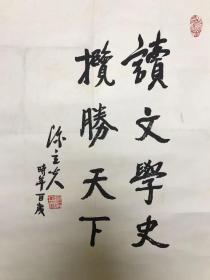 讀文學史
攬勝天下
涂立炎
時年百歲